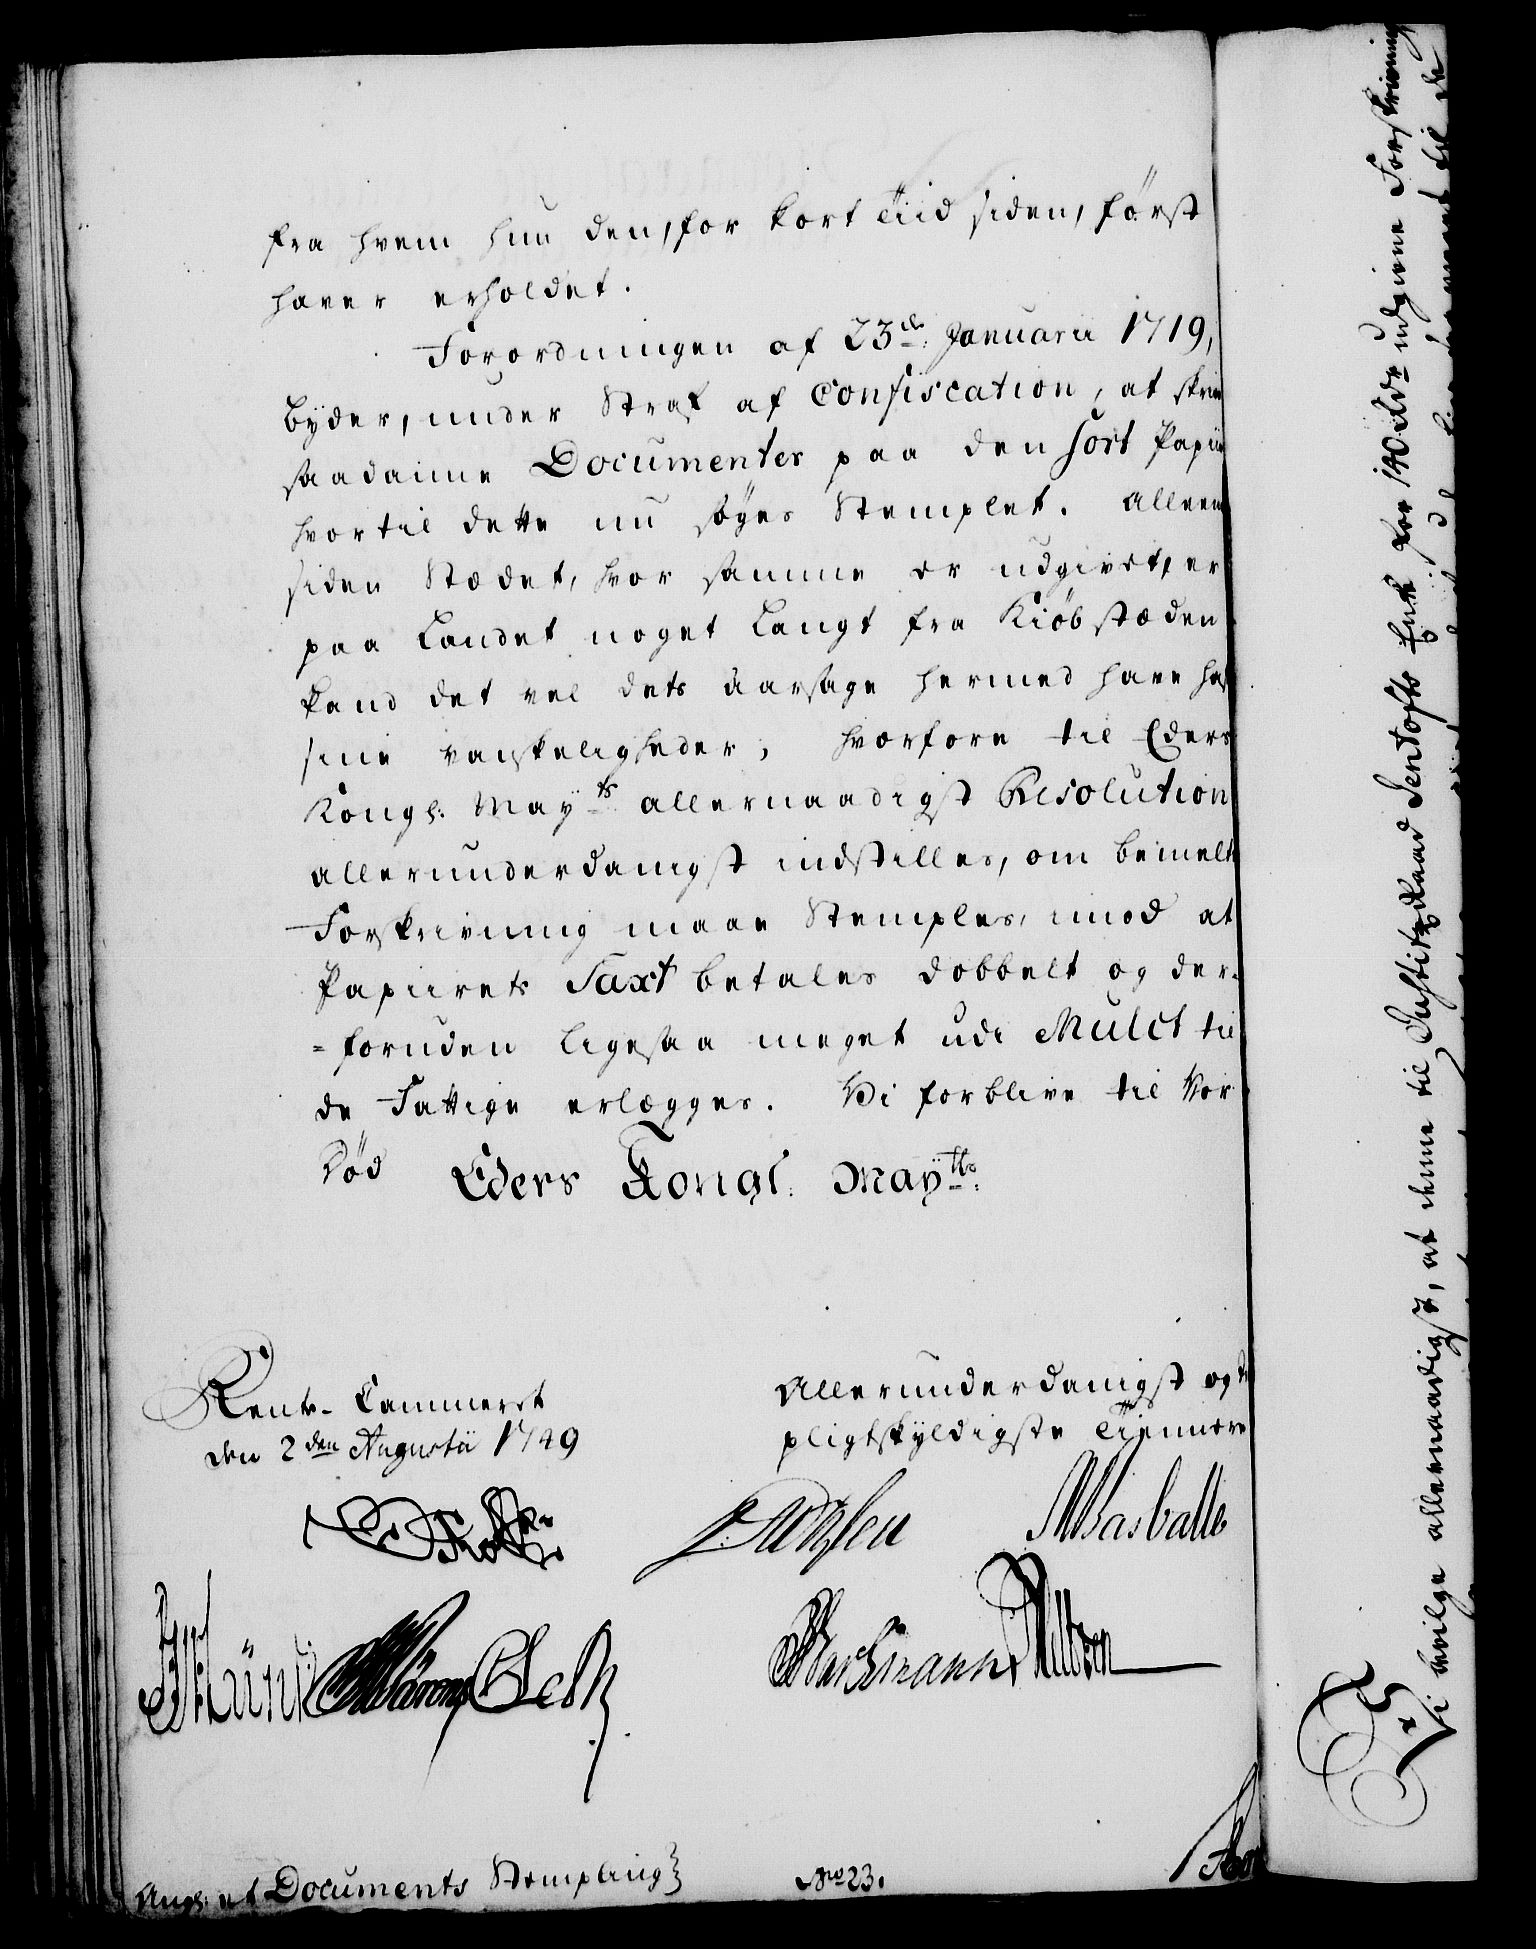 fra hvem hun den, for kort Tiid siden, først
haver erholdet.
Forordningen af 23de Januarii 1719,
byder, under Straf af Confiscation, at skriv
saadanne Documenter paa den sort Papiir
hvortil dette nu søges Stemplet. Alleene
siden Stædet, hvor samme er udgivet, er
paa Landet noget Langt fra Kiøbstæden
kand det vel dets aarsage hermed have haft
sine vanskeligheder; hvorfore til Eders
Kongl: Mayts allernaadigst Resolution
allerunderdanigst indstilles, om bemelte
Forskrivning maae Stemples, imod at
Papiirets Taxt betales dobbelt og der-
=foruden ligesaa meget udi Mulct til
de Fattige erlægges. Vi forblive til Vor
Død Eders Kongl. Maytts
Rente-Cammeret
den 2den Augustii 1749
Allerunderdanigst og
pligtskyldigste Tiennere
Masballe
Ang: et Documents Stempling
No 23.
Vi bevilge allernaadigst, at denne til Justitz-Raad Sentofts Enke for 140 Rdr udgivne Forskrivning